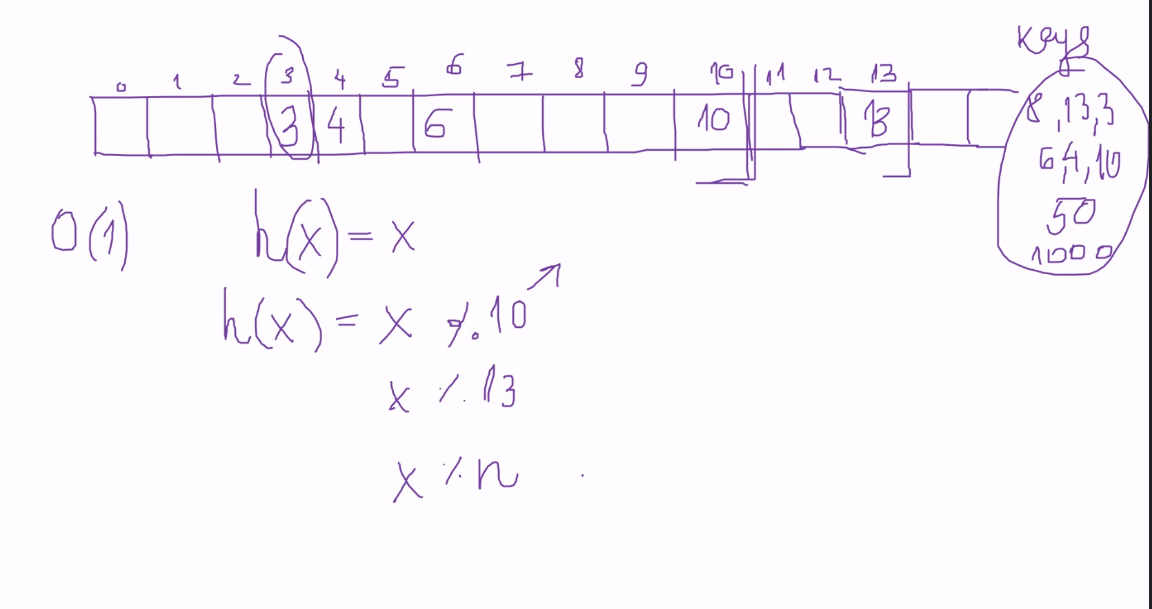 keys
0 1 2 3 4 5 6 7 8 9 10 11 12 13
3 4 6 10 13
8, 13, 3
6, 4, 10
50
1000
O(1) h(x) = x
h(x) = x % 10
x % 13
x % n